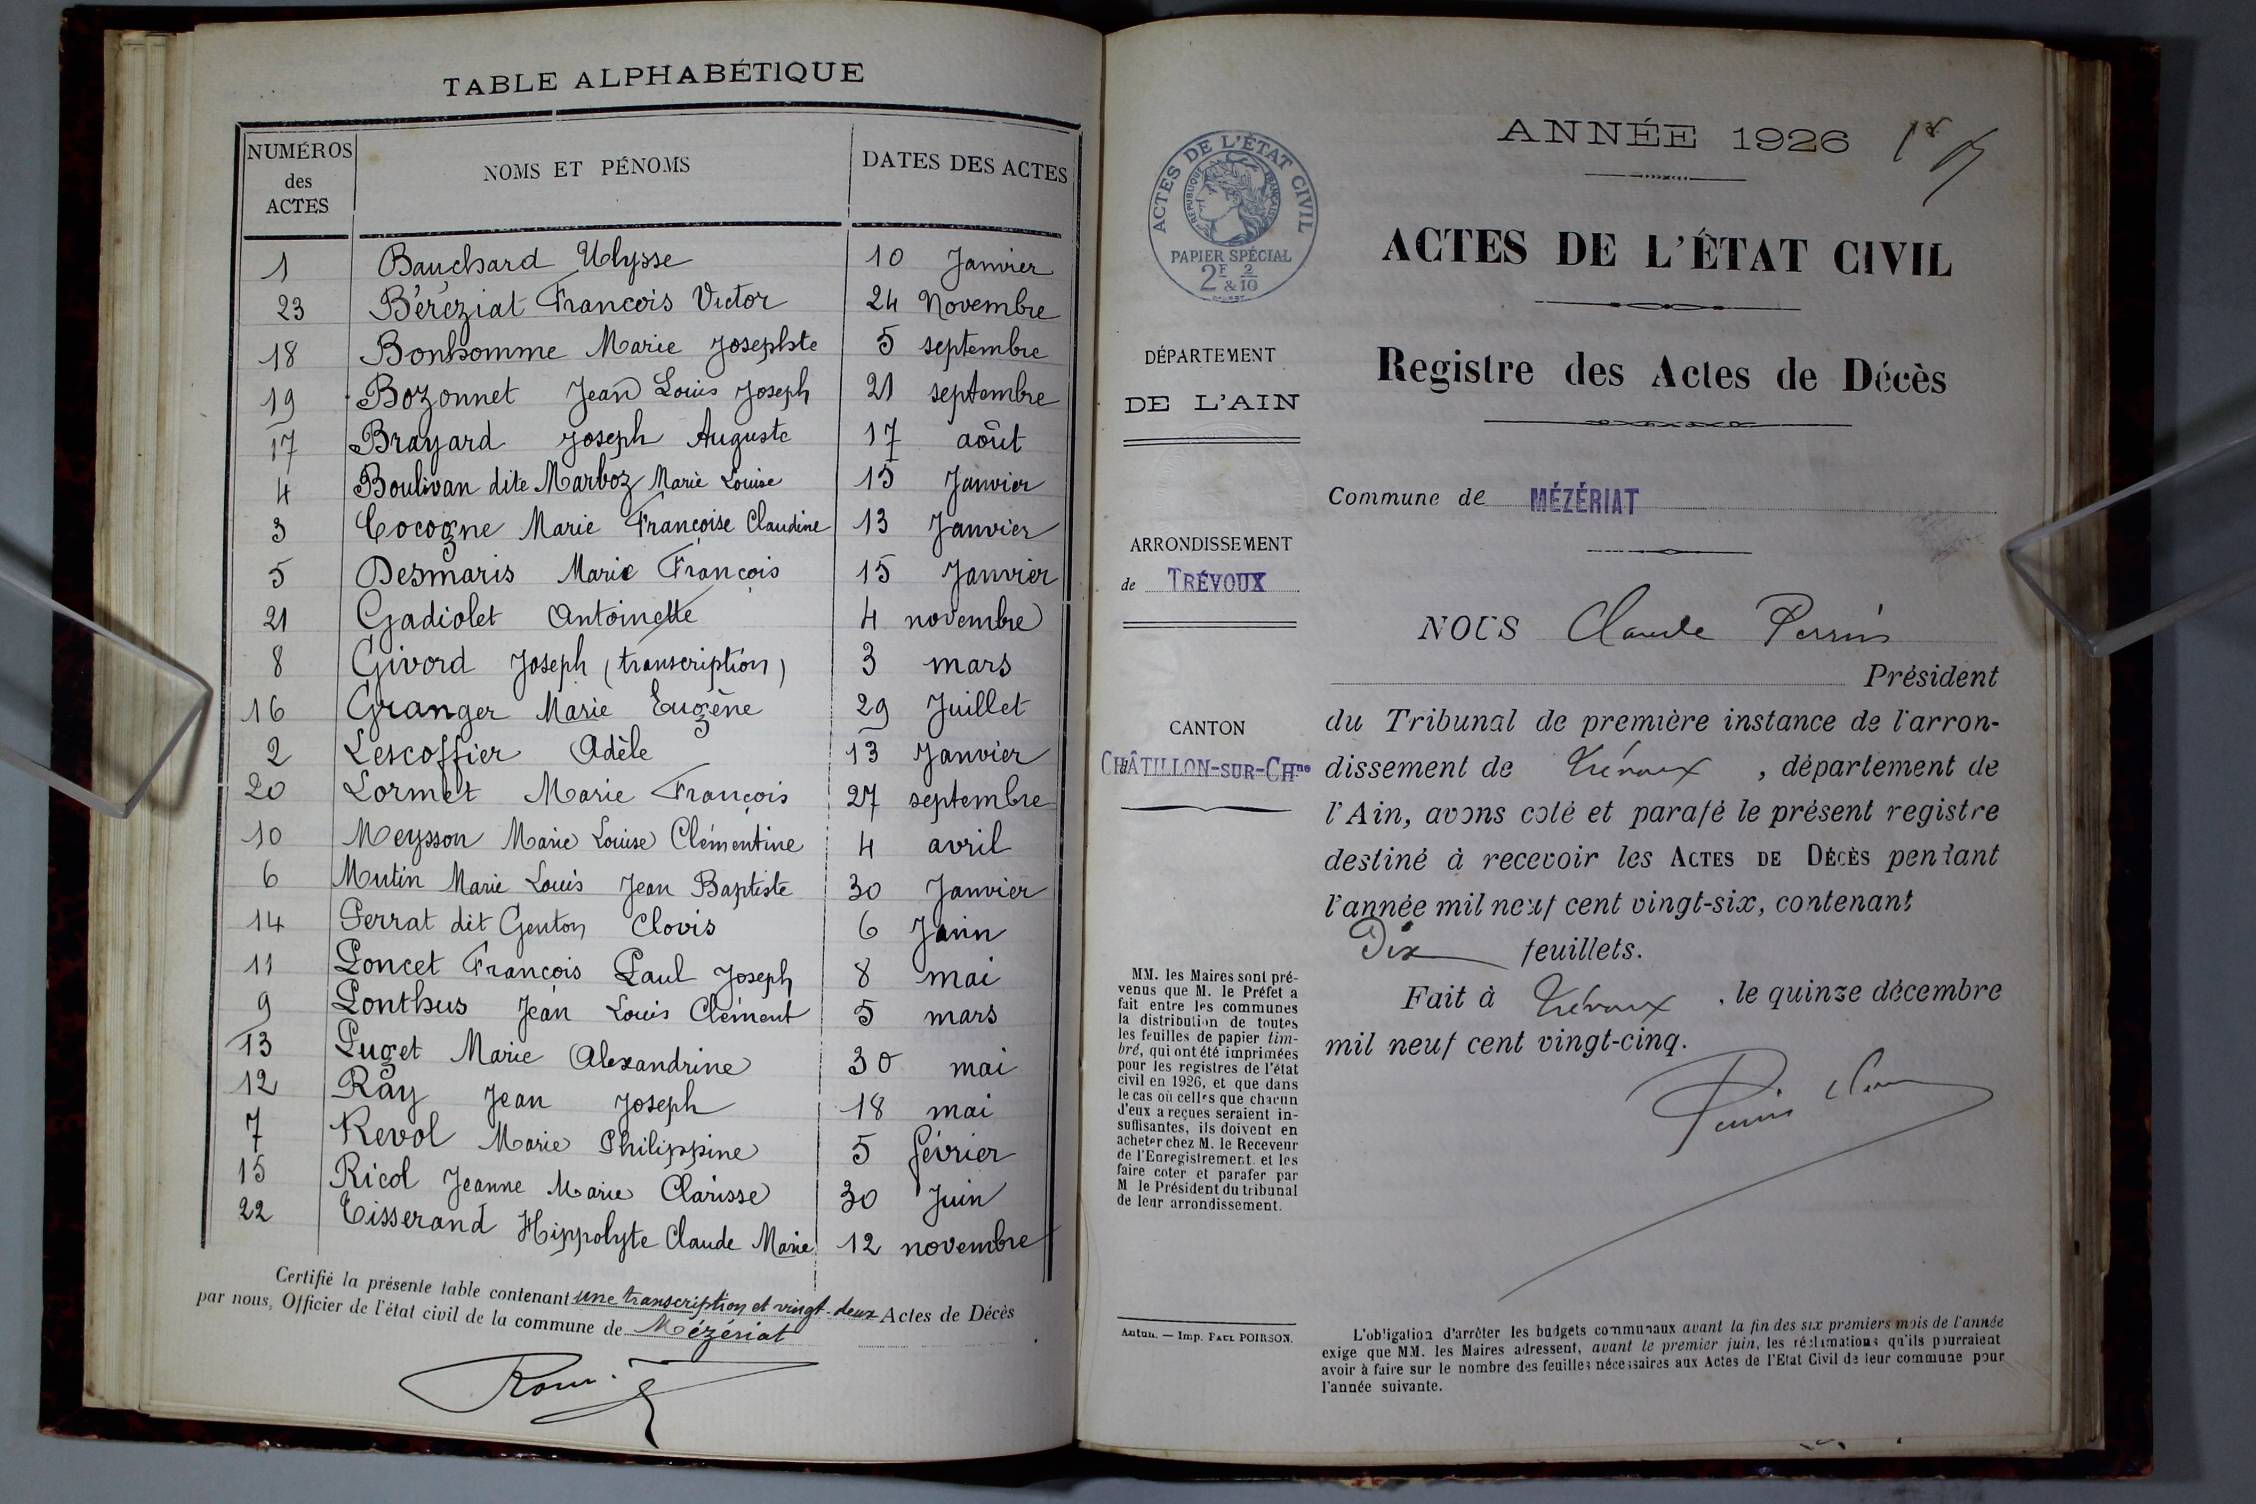 TABLE ALPHABÉTIQUE
NUMÉROS des ACTES NOMS ET PÉNOMS DATES DES ACTES
1 Bauchard Ulysse 10 Janvier
23 Béréziat François Victor 24 Novembre
18 Bonhomme Marie Josephte 5 septembre
19 Bozonnet Jean Louis Joseph 21 septembre
17 Brayard Joseph Auguste 17 août
4 Boulivan dite Marboz Marie Louise 15 Janvier
3 Cocogne Marie Françoise Claudine 13 Janvier
5 Desmaris Marie François 15 Janvier
21 Gadiolet Antoinette 4 novembre
8 Givord Joseph (transcription) 3 mars
16 Granger Marie Eugène 29 Juillet
2 Lescoffier Adèle 13 Janvier
20 Lormet Marie François 27 septembre
10 Meysson Marie Louise Clémentine 4 avril
6 Mutin Marie Louis Jean Baptiste 30 Janvier
14 Perrat dit Genton Clovis 6 Juin
11 Poncet François Paul Joseph 8 mai
9 Ponthus Jean Louis Clément 5 mars
13 Puget Marie Alexandrine 30 mai
12 Ray Jean Joseph 18 mai
7 Revol Marie Philippine 5 février
15 Ricol Jeanne Marie Clarisse 30 Juin
22 Tisserand Hippolyte Claude Marie 12 novembre
Certifié la présente table contenant une transcription et vingt-deux Actes de Décès
par nous, Officier de l'état civil de la commune de Mézériat
ANNÉE 1926
ACTES DE L'ÉTAT CIVIL
RÉPUBLIQUE FRANÇAISE
PAPIER SPÉCIAL
2F & 2/10
ACTES DE L'ÉTAT CIVIL
Registre des Actes de Décès
DÉPARTEMENT
DE L'AIN
ARRONDISSEMENT
de TRÉVOUX
CANTON
CHÂTILLON-SUR-CHne
MM. les Maires sont pré-
venus que M. le Préfet a
fait entre les communes
la distribution de toutes
les feuilles de papier tim-
bré, qui ont été imprimées
pour les registres de l'état
civil en 1926, et que dans
le cas où celles que chacun
d'eux a reçues seraient in-
suffisantes, ils doivent en
acheter chez M. le Receveur
de l'Enregistrement et les
faire coter et parafer par
M le Président du tribunal
de leur arrondissement.
Autun. — Imp. PAUL POIRSON.
Commune de MÉZÉRIAT
NOUS Claude Perrin
Président
du Tribunal de première instance de l'arron-
dissement de Trévoux, département de
l'Ain, avons coté et parafé le présent registre
destiné à recevoir les ACTES DE DÉCÈS pendant
l'année mil neuf cent vingt-six, contenant
Dix feuillets.
Fait à Trévoux, le quinze décembre
mil neuf cent vingt-cinq.
L'obligation d'arrêter les budgets communaux avant la fin des six premiers mois de l'année
exige que MM. les Maires adressent, avant le premier juin, les réclamations qu'ils pourraient
avoir à faire sur le nombre des feuilles nécessaires aux Actes de l'Etat Civil de leur commune pour
l'année suivante.